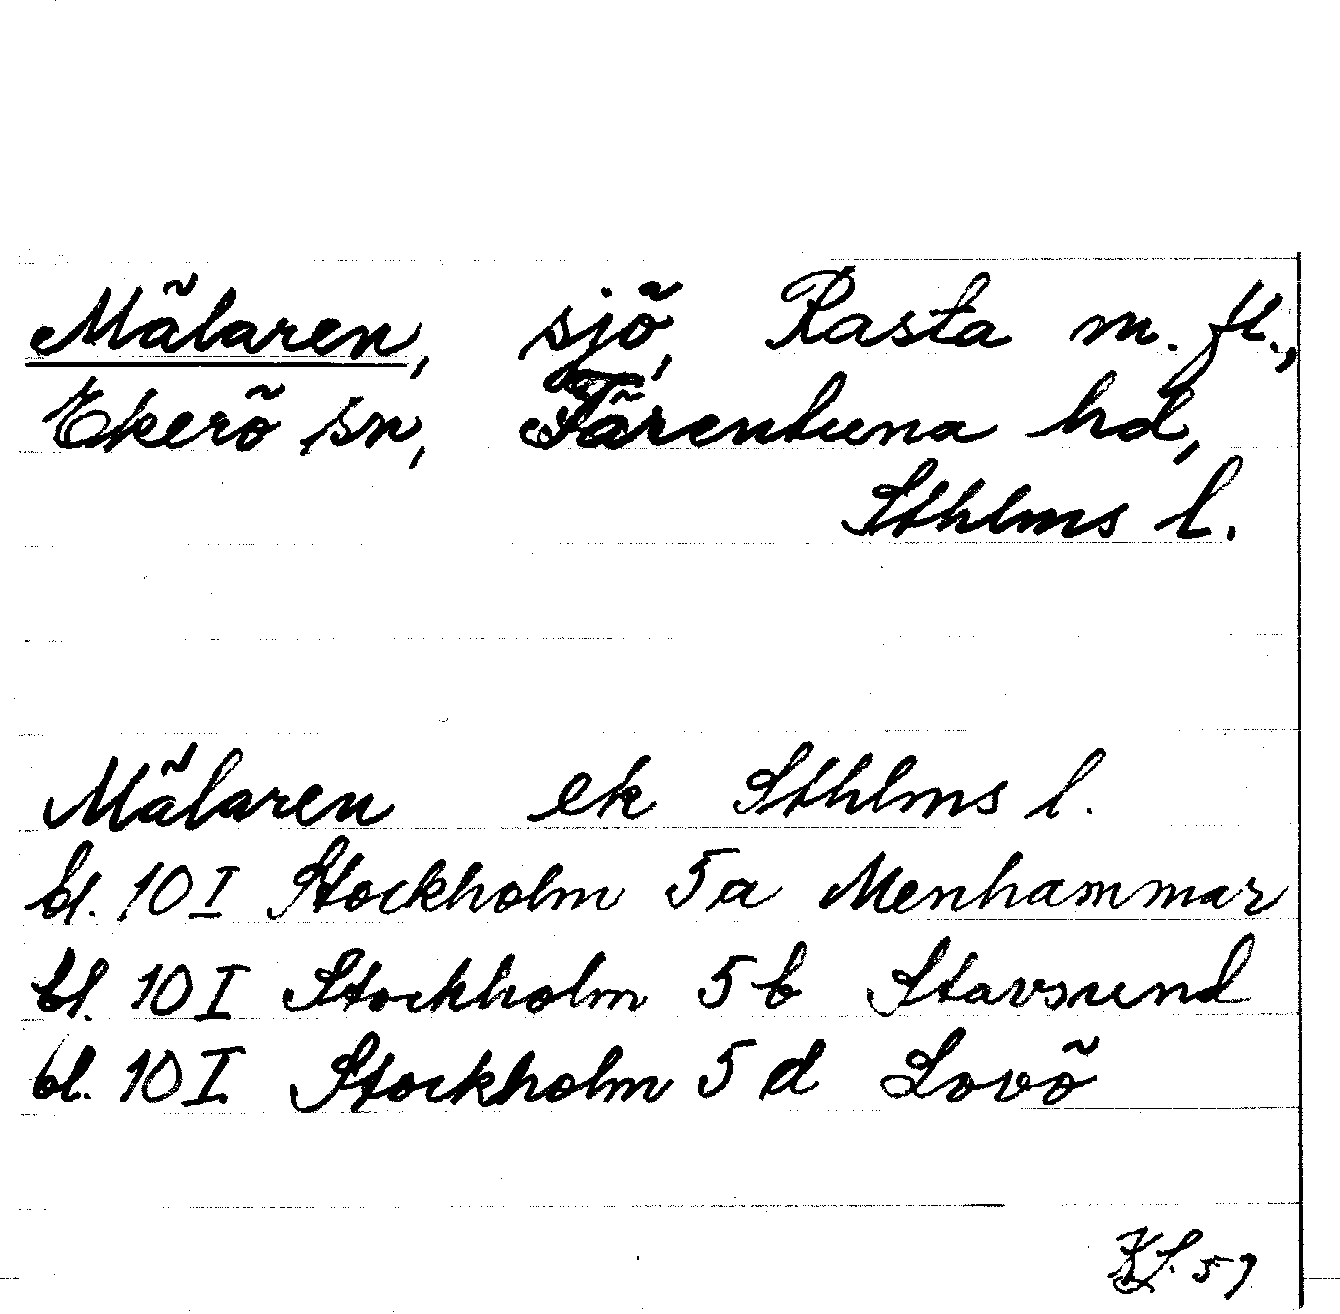 Mälaren, sjö, Rasta m. fl.,
Ekerö sn, Färentuna hd,
Sthlms l.
Mälaren ek Sthlms l.
bl. 10 I Stockholm 5a Menhammar
bl. 10 I Stockholm 5 b Stavsund
bl. 10 I Stockholm 5 d Lovö